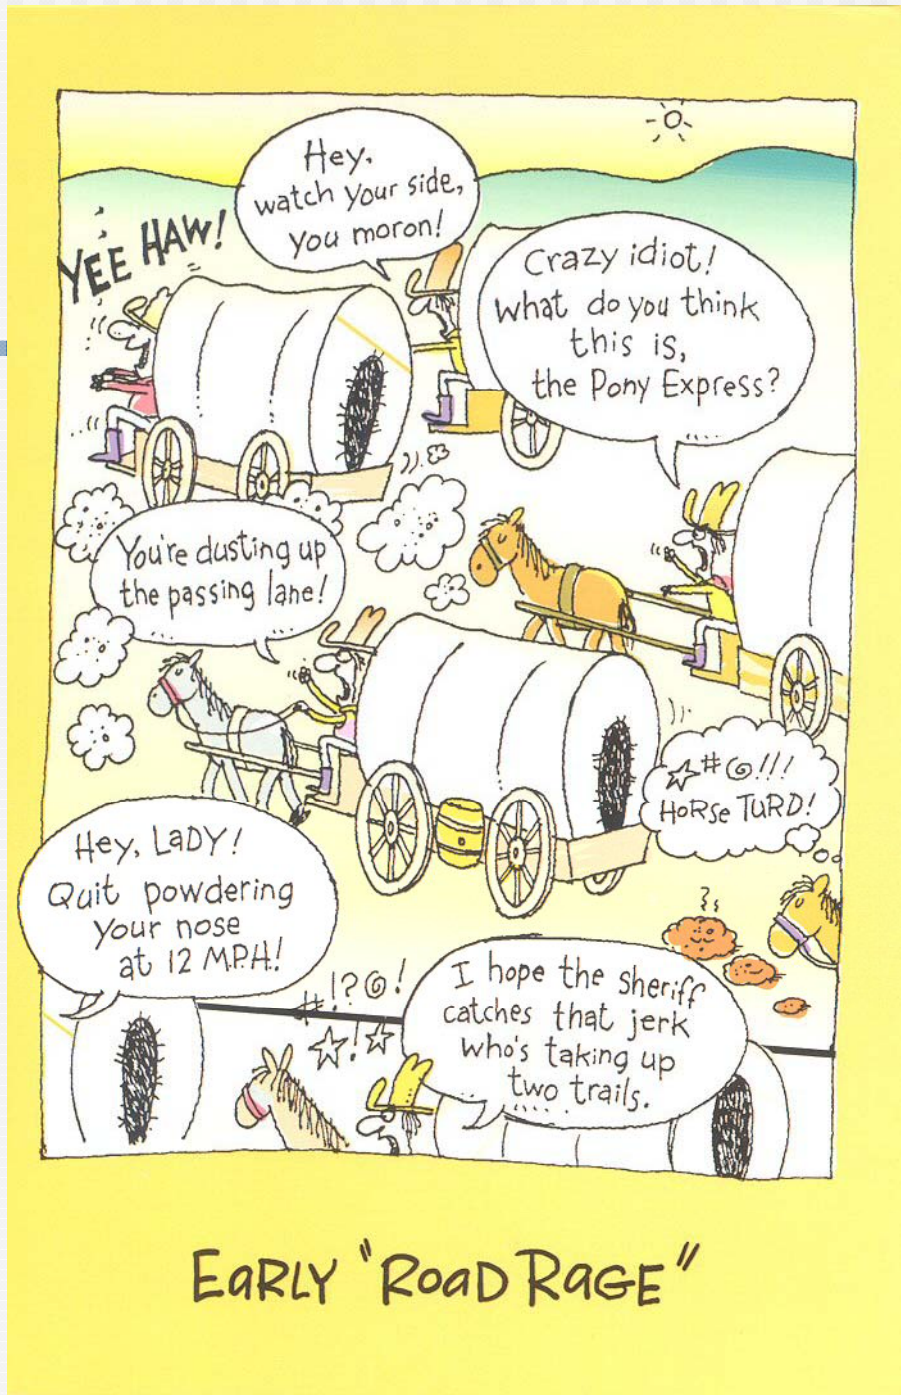 Hey,
watch your side,
you moron!
YEE HAW!
Crazy idiot!
What do you think
this is,
the Pony Express?
You're dusting up
the passing lane!
#@!!!
HORSE TURD!
Hey, LADY!
Quit powdering
your nose
at 12 M.P.H!
#!?@!
!
I hope the sheriff
catches that jerk
who's taking up
two trails.
EARLY "ROAD RAGE"